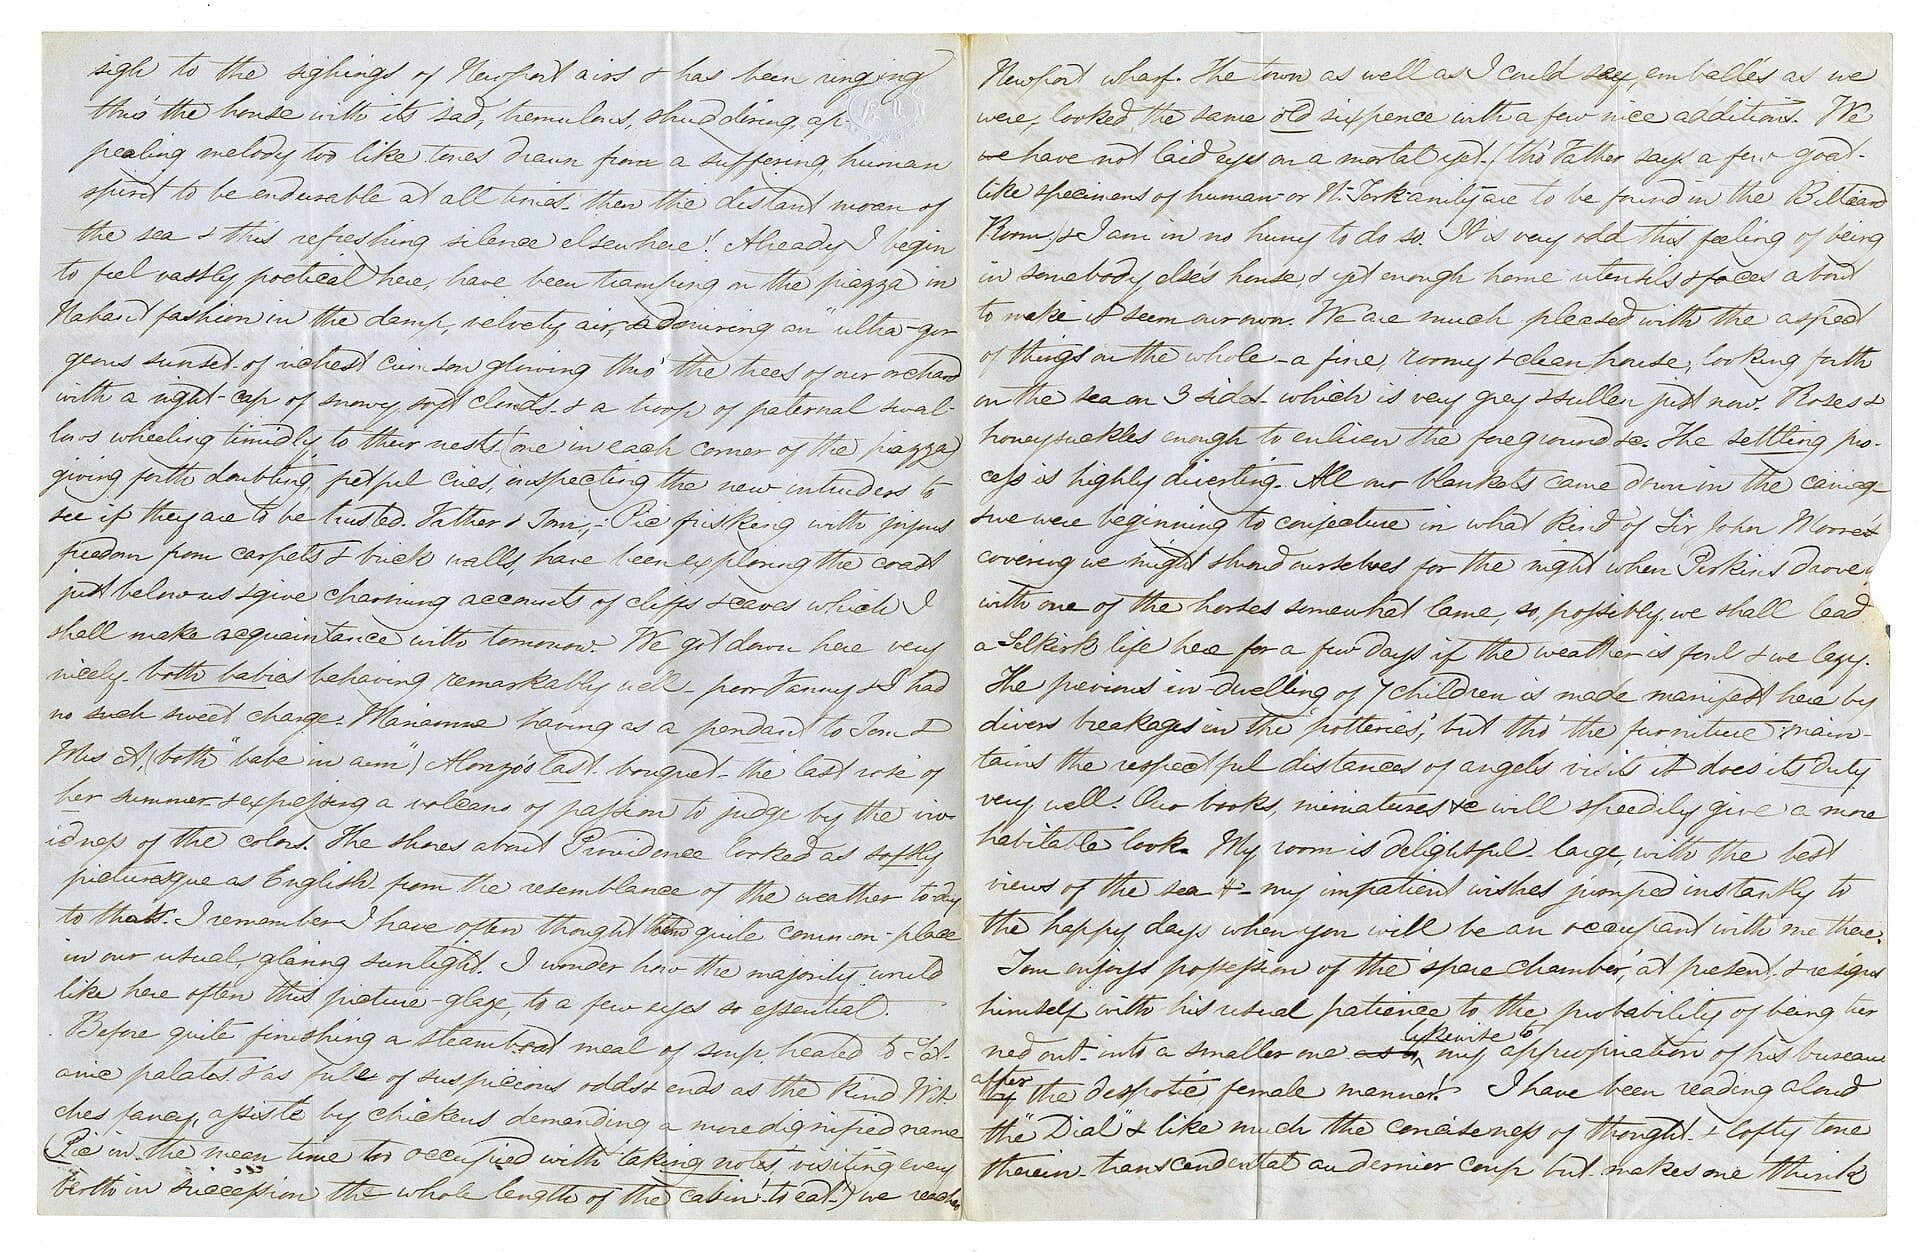 sigh to the sighings of Newport airs & has been ringing
thro' the house with its sad, tremulous, shuddering, ap-
pealing melody too like tones drawn from a suffering, human
spirit to be endurable at all times. then the distant moan of
the sea & this refreshing silence elsewhere! Already I begin
to feel vastly poetical here, have been tramping on the piazza in
Nahant fashion in the damp, velvety air, admiring an "ultra-gor
geous sunset of richest crimson glowing thro' the trees of our orchard
with a night-cap of snowy, soft clouds & a troop of paternal swal-
lows wheeling timidly to their nests (one in each corner of the piazza)
giving forth doubting, fretful cries, inspecting the new intruders to
see if they are to be trusted. Father & Tom, - Pic frisking with joyous
freedom from carpets & brick walls, have been exploring the coast
just below us & give charming accounts of cliffs & caves which I
shall make acquaintance with tomorrow. We got down here very
nicely both babies behaving remarkably well - poor Fanny & I had
no such sweet charge. Marianne having as a pendant to Tom &
Mrs A, (both "babe in arm") Alonzo's last bouquet - the last rose of
her summer & expressing a volcano of passion to judge by the viv-
idness of the colors. The shores about Providence looked as softly
picturesque as English from the resemblance of the weather to-day
to that. I remember I have often thought them quite common-place
in our usual, glaring sunlight. I wonder how the majority would
like here often this picture-glaze, to a few eyes so essential.
Before quite finishing a steamboat meal of soup heated to Sat-
anic palates & as full of suspicious odds & ends as the kind Wit-
ches fancy, assisté by chickens demanding a more dignified name
(Pic in the mean time too occupied with taking notes, visiting every
berth in succession the whole length of the cabin to eat) we reached
Newport wharf. The town as well as I could say, emballés as we
were, looked the same old sixpence with a few nice additions. We
we have not laid eyes on a mortal yet (tho' Father says a few goat-
like specimens of human- or N. York-anity are to be found in the Billiard
Room) & I am in no hurry to do so. It is very odd this feeling of being
in somebody else's house, & yet enough home utensils & faces about
to make it seem our own. We are much pleased with the aspect
of things on the whole - a fine, roomy & clean house, looking forth
on the sea on 3 sides - which is very grey & sullen just now. Roses &
honeysuckles enough to enliven the foreground &c. The settling pro-
cess is highly diverting. All our blankets came down in the carriage
& we were beginning to conjecture in what kind of Sir John Moore's
covering we might shroud ourselves for the night when Perkins drove
with one of the horses somewhat lame, so, possibly, we shall lead
a Selkirk life here for a few days if the weather is foul & we lazy.
The previous in-dwelling of 7 children is made manifest here by
divers breakages in the 'potteries', but tho' the furniture main-
tains the respectful distances of angels visits it does its duty
very well. Our books, miniatures &c will speedily give a more
habitable look. My room is delightful - large, with the best
views of the sea & - my impatient wishes jumped instantly to
the happy days when you will be an occupant with me there.
Tom enjoys possession of the 'spare chamber', at present, & resigns
himself with his usual patience to the probability of being tur
ned out into a smaller one likewise to my appropriation of his bureau
after the despotic female manner! I have been reading aloud
the "Dial" & like much the conciseness of thought & lofty tone
therein - transcendental au dernier coup but makes one think